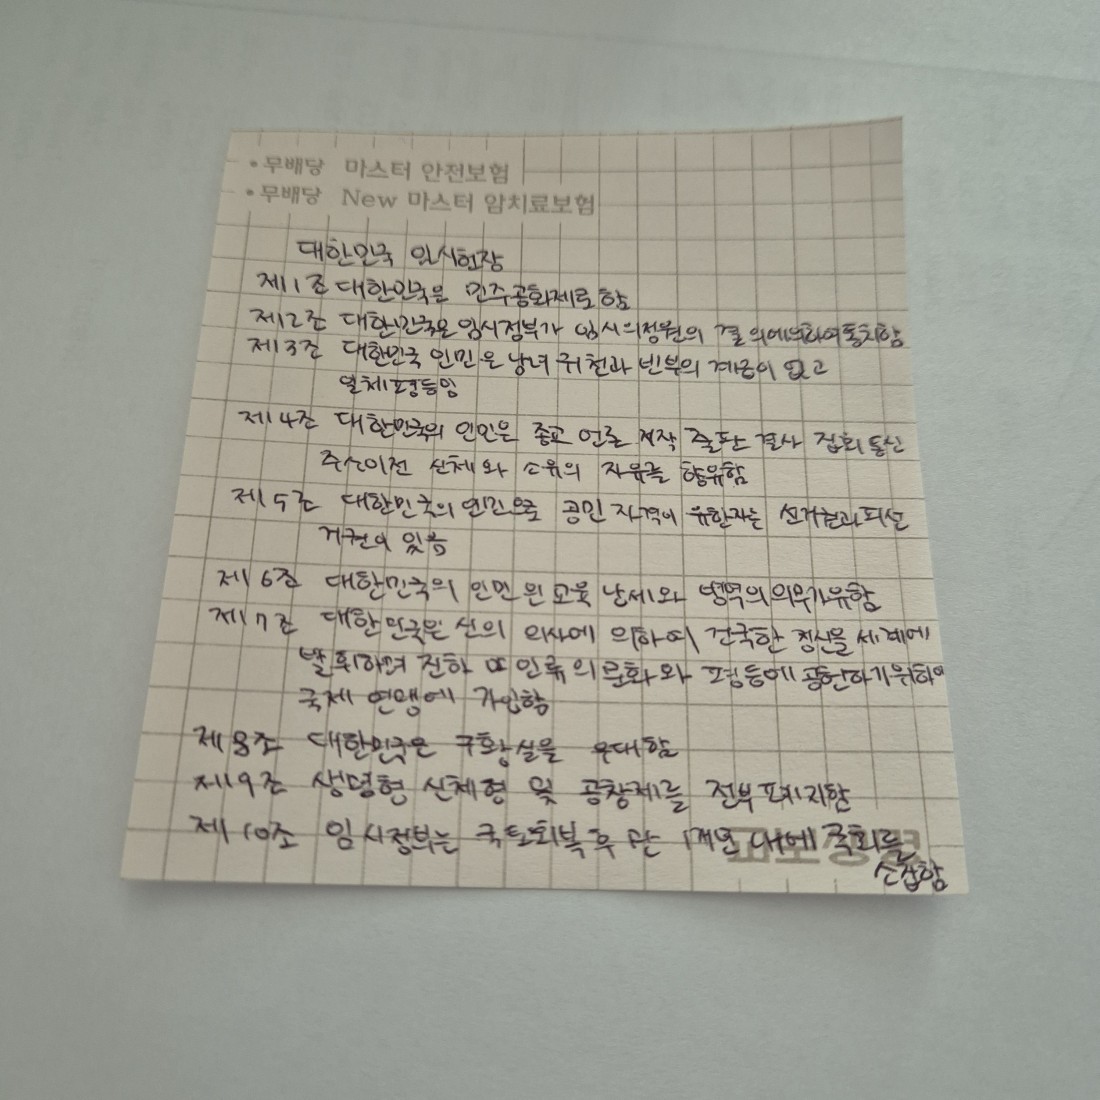 • 무배당 마스터 안전보험
• 무배당 New 마스터 암치료보험
대한민국 임시헌장
제1조 대한민국은 민주공화제로함
제2조 대한민국은 임시정부가 임시의정원의 결의에의하여통치함
제3조 대한민국 인민은 남녀 귀천과 빈부의 계급이 없고
일체평등임
제4조 대한민국의 인민은 종교 언론 저작 출판 결사 집회 통신
주소이전 신체와 소유의 자유를 향유함
제5조 대한민국의 인민으로 공민 자격이 유한자는 선거권과피선
거권이 있음
제6조 대한민국의 인민은 교육 납세와 병역의의무가유함
제7조 대한민국은 신의 의사에 의하여 건국한 정신을 세계에
발휘하며 진하 또 인류의 문화와 평등에 공헌하기위하여
국제 연맹에 가입함
제8조 대한민국은 구황실을 우대함
제9조 생명형 신체형 및 공창제를 전부폐지함
제10조 임시정부는 국토회복후 만 1개년 내에 국회를
소집함